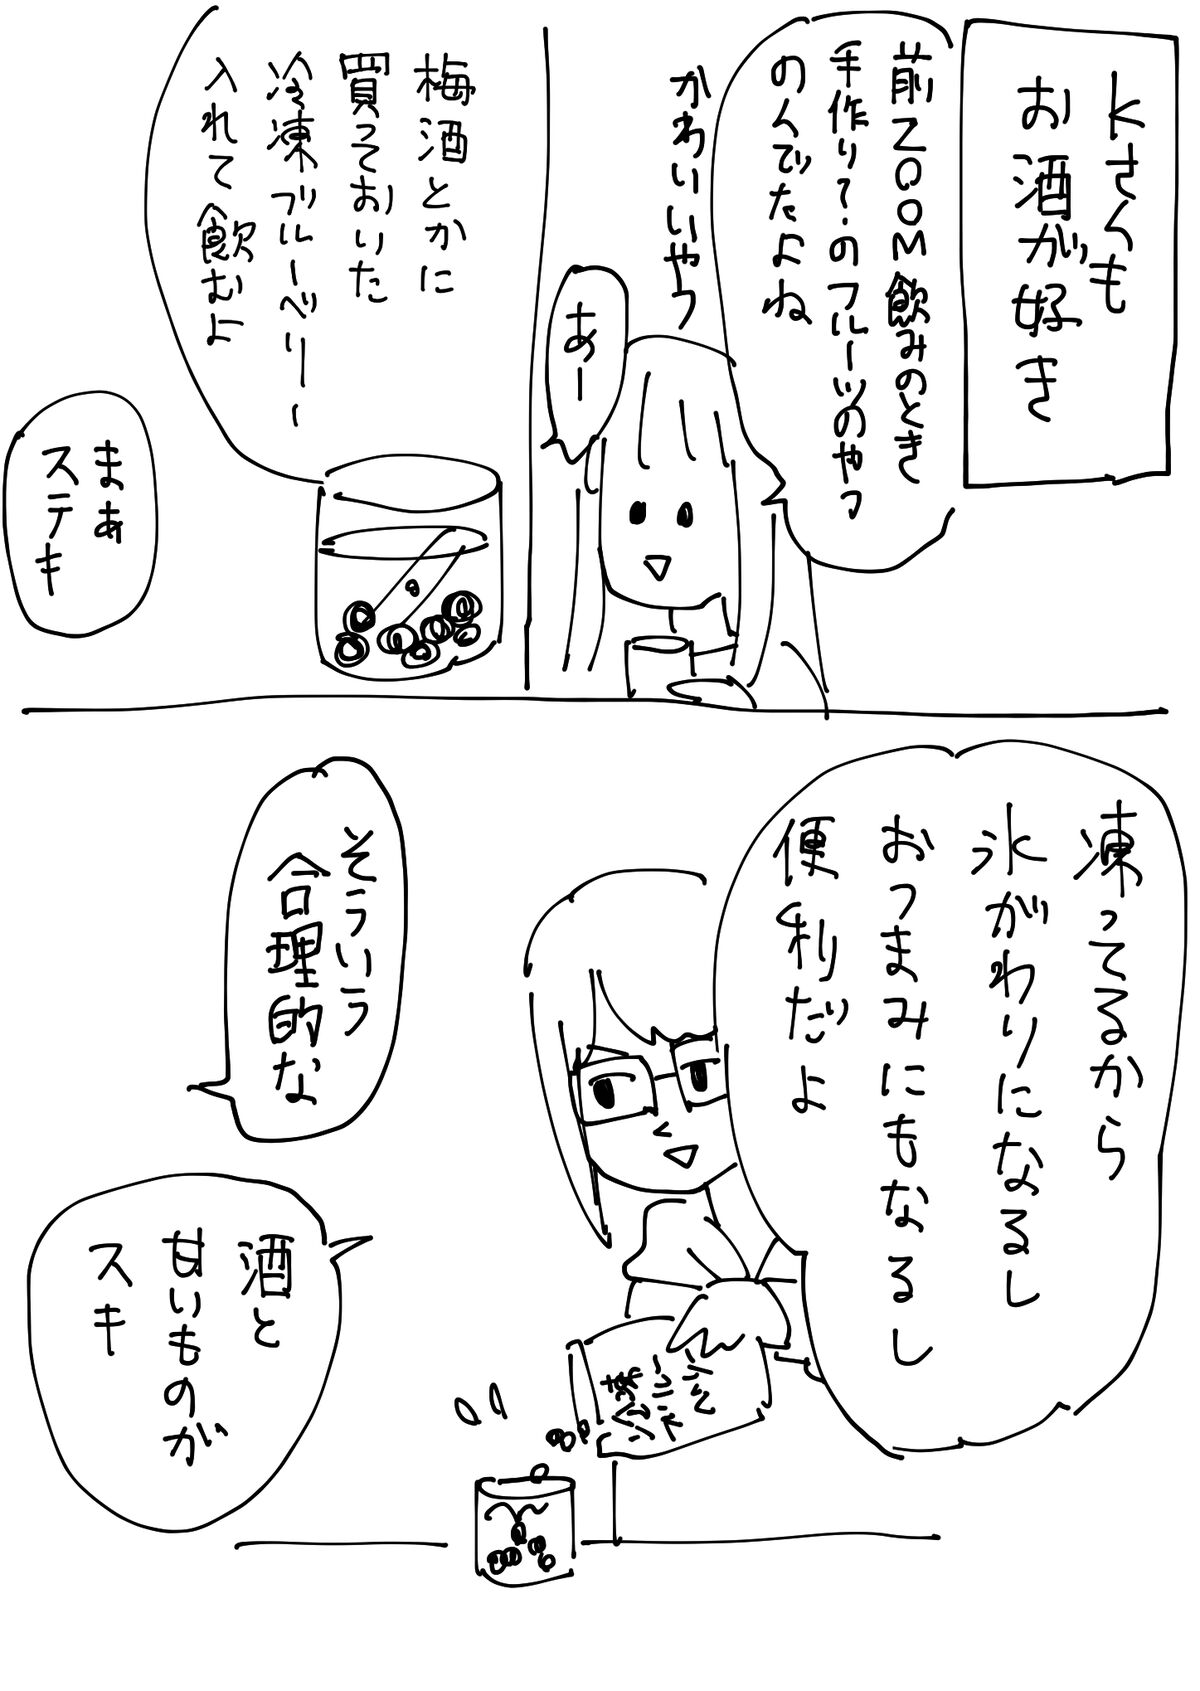 Kさんも
お酒が好き
前ZOOM飲みのとき
手作り?のフルーツのやつ
のんでたよね
かわいいやつ
あー
梅酒とかに
買っておいた
冷凍ブルーベリー
入れて飲むよ
まぁ
ステキ
凍ってるから
氷がわりになるし
おつまみにもなるし
便利だよ
そういう
合理的な
酒と
甘いものが
スキ